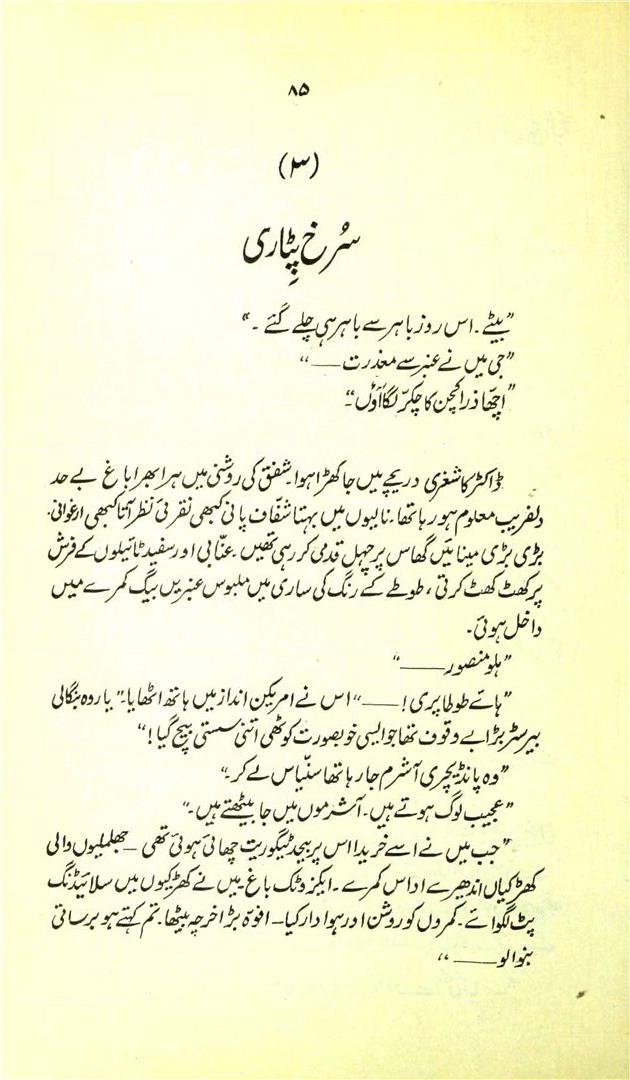 ۸۵
(۳)
سُرخ پِٹاری
”بیٹے۔ اس روز باہر سے باہر ہی چلے گئے۔“
”جی میں نے عنبر سے معذرت ——“
”اچھّا ذرا کچن کا چکّر لگا آؤں“
ڈاکٹر کاشغری دریچے میں جا کھڑا ہوا۔ شفق کی روشنی میں ہرا بھرا باغ بے حد
دلفریب معلوم ہو رہا تھا۔ نالیوں میں بہتا شفّاف پانی کبھی نقرئی نظر آتا کبھی ارغوانی۔
بڑی بڑی مینائیں گھاس پر چہل قدمی کر رہی تھیں۔ عنّابی اور سفید ٹائیلوں کے فرش
پر کھٹ کھٹ کرتی، طوطے کے رنگ کی ساری میں ملبوس عنبریں بیگ کمرے میں
داخل ہوئی۔
”ہلو منصور ——“
”ہائے طوطا پری! ——“ اس نے امریکن انداز میں ہاتھ اٹھایا۔ ”یار وہ بنگالی
بیرسٹر بڑا بے وقوف تھا جو ایسی خوبصورت کوٹھی اتنی سستی بیچ گیا!“
”وہ پانڈیچری آشرم جا رہا تھا سنّیاس لے کر۔“
”عجیب لوگ ہوتے ہیں۔ آشرموں میں جا بیٹھتے ہیں۔“
”جب میں نے اسے خریدا اس پر بیحد ٹیگوریت چھائی ہوئی تھی — جھلملیوں والی
کھڑکیاں اندھیرے اداس کمرے۔ ایکزوٹک باغ۔ میں نے کھڑکیوں میں سلائیڈنگ
پٹ لگوائے۔ کمروں کو روشن اور ہوادار کیا — افوہ بڑا خرچہ بیٹھا۔ تم کہتے ہو برساتی
بنوالو ——“